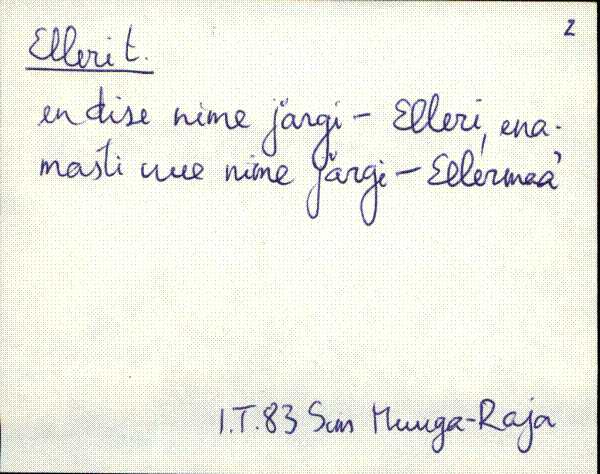 2
Elleri t.
endise nime järgi – Elleri, ena-
masti uue nime järgi – Ellermaa
I.T. 83 Sim Muuga-Raja